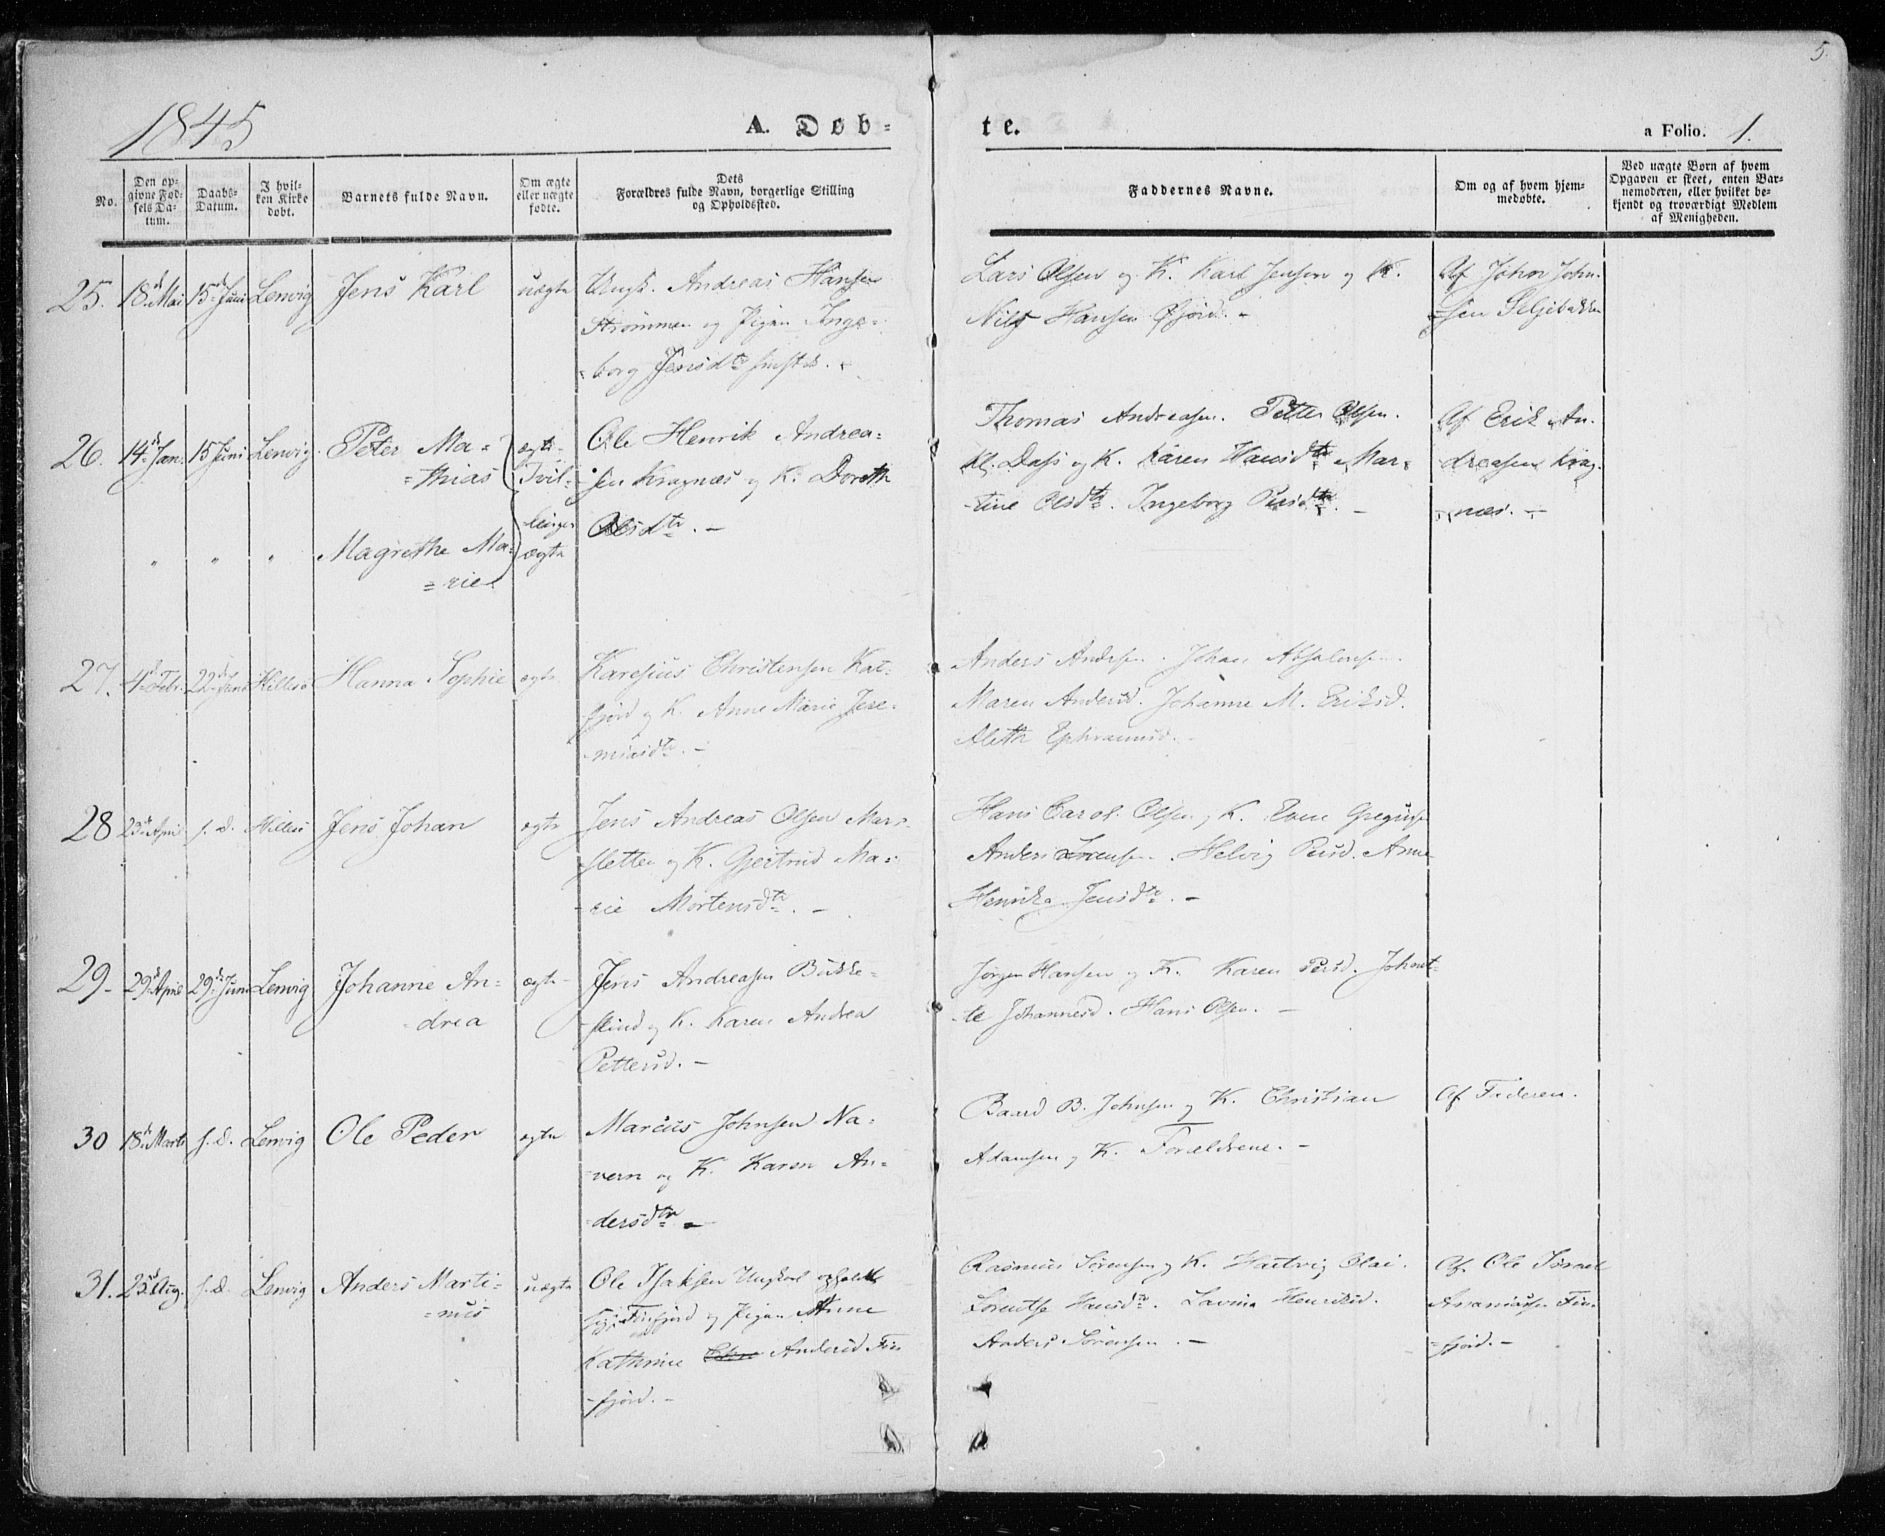 5.
1845
A. Døb-
te.
a Folio. 1.
No.
Den op-
givne Fød-
sels Da-
tum.
Daabs-
Datum.
I hvil-
ken Kirke
døbt.
Barnets fulde Navn.
Om ægte
eller uægte
fødte.
Dets
Forældres fulde Navn, borgerlige Stilling
og Opholdssted.
Faddernes Navne.
Om og af hvem hjem-
medøbte.
Ved uægte Børn af hvem
Opgaven er skeet, enten Bar-
nemoderen, eller hvilket be-
kjendt og troværdigt Medlem
af Menigheden.
25. 18d Mai 15d Juni Lenvig Jens Karl uægte
Ungk. Andreas Hansen
Strømmen og Pigen Inge-
-borg Jensdtr
Lars Olsen og K. Karl Jensen og K.
Nils Hansen
Af Johan John-
-sen
26. 14d Jan. 15 Juni Lenvig Peter Ma-
-thias
ægte
Tvil-
linger
Ole Henrik Andrea-
sen Kragnæs og K. Doroth
Olsdtr. -
Thomas Andreasen. Petter Olsen.
Dass og K. Karen Hansdtr Mar-
-tine Olsdtr. Ingeborg Persdtr. -
Af Erik An-
dreasen Krag-
næs. -
" " " Magrethe Ma-
-rie
ægte
27. 4d Febr. 22d Juni Hillesø Hanna Sophie ægte
Karesius Christensen Kat-
fjord og K. Anne Marie Jere-
miasdtr. -
Anders Andersen. Johan Absalonsen.
Maren Andersd. Johanne M. Eriksd.
Aleth Ephraimsd. -
28 23d April s. d. Hillesø Jens Johan ægte
Jens Andreas Olsen Mars-
sletten og K. Gjertrud Ma-
-rie Mortensdtr. -
Hans Carol. Olsen og K. Even
Anders Helvig Persd. Anne
Henrika Jensdtr. -
29- 29d April 29d Juni Lenvig Johanne An-
-drea
ægte
Jens Andreasen Bukke-
-skind og K. Karen Andrea
Pettersd. -
Jørgen Hansen og K. Karen Persd. Johnet-
-te Johannesd. Hans Olsen. -
30 18d Marts s. d. Lenvig Ole Peder ægte
Marcus Johnsen Na-
-vern og K. Karen An-
dersdtr -
Baard B. Johnsen og K. Christian
Adamsen og K. Forældrene. -
Af Faderen.
31. 23d Aug. s. d. Lenvig Anders Marti-
-nus
uægte
Ole Isaksen Ungkarl opholdt
sig i Finfjord og Pigen Anne
Kathrine Andersd Fin
-fjord. -
Rasmus Sørensen og K. Hartvig Olai.
Lorentse Hansdtr. Lavina Henriksd.
Anders Sørensen. -
Af Ole Israel
Ananiassen Fin-
-fjord. -